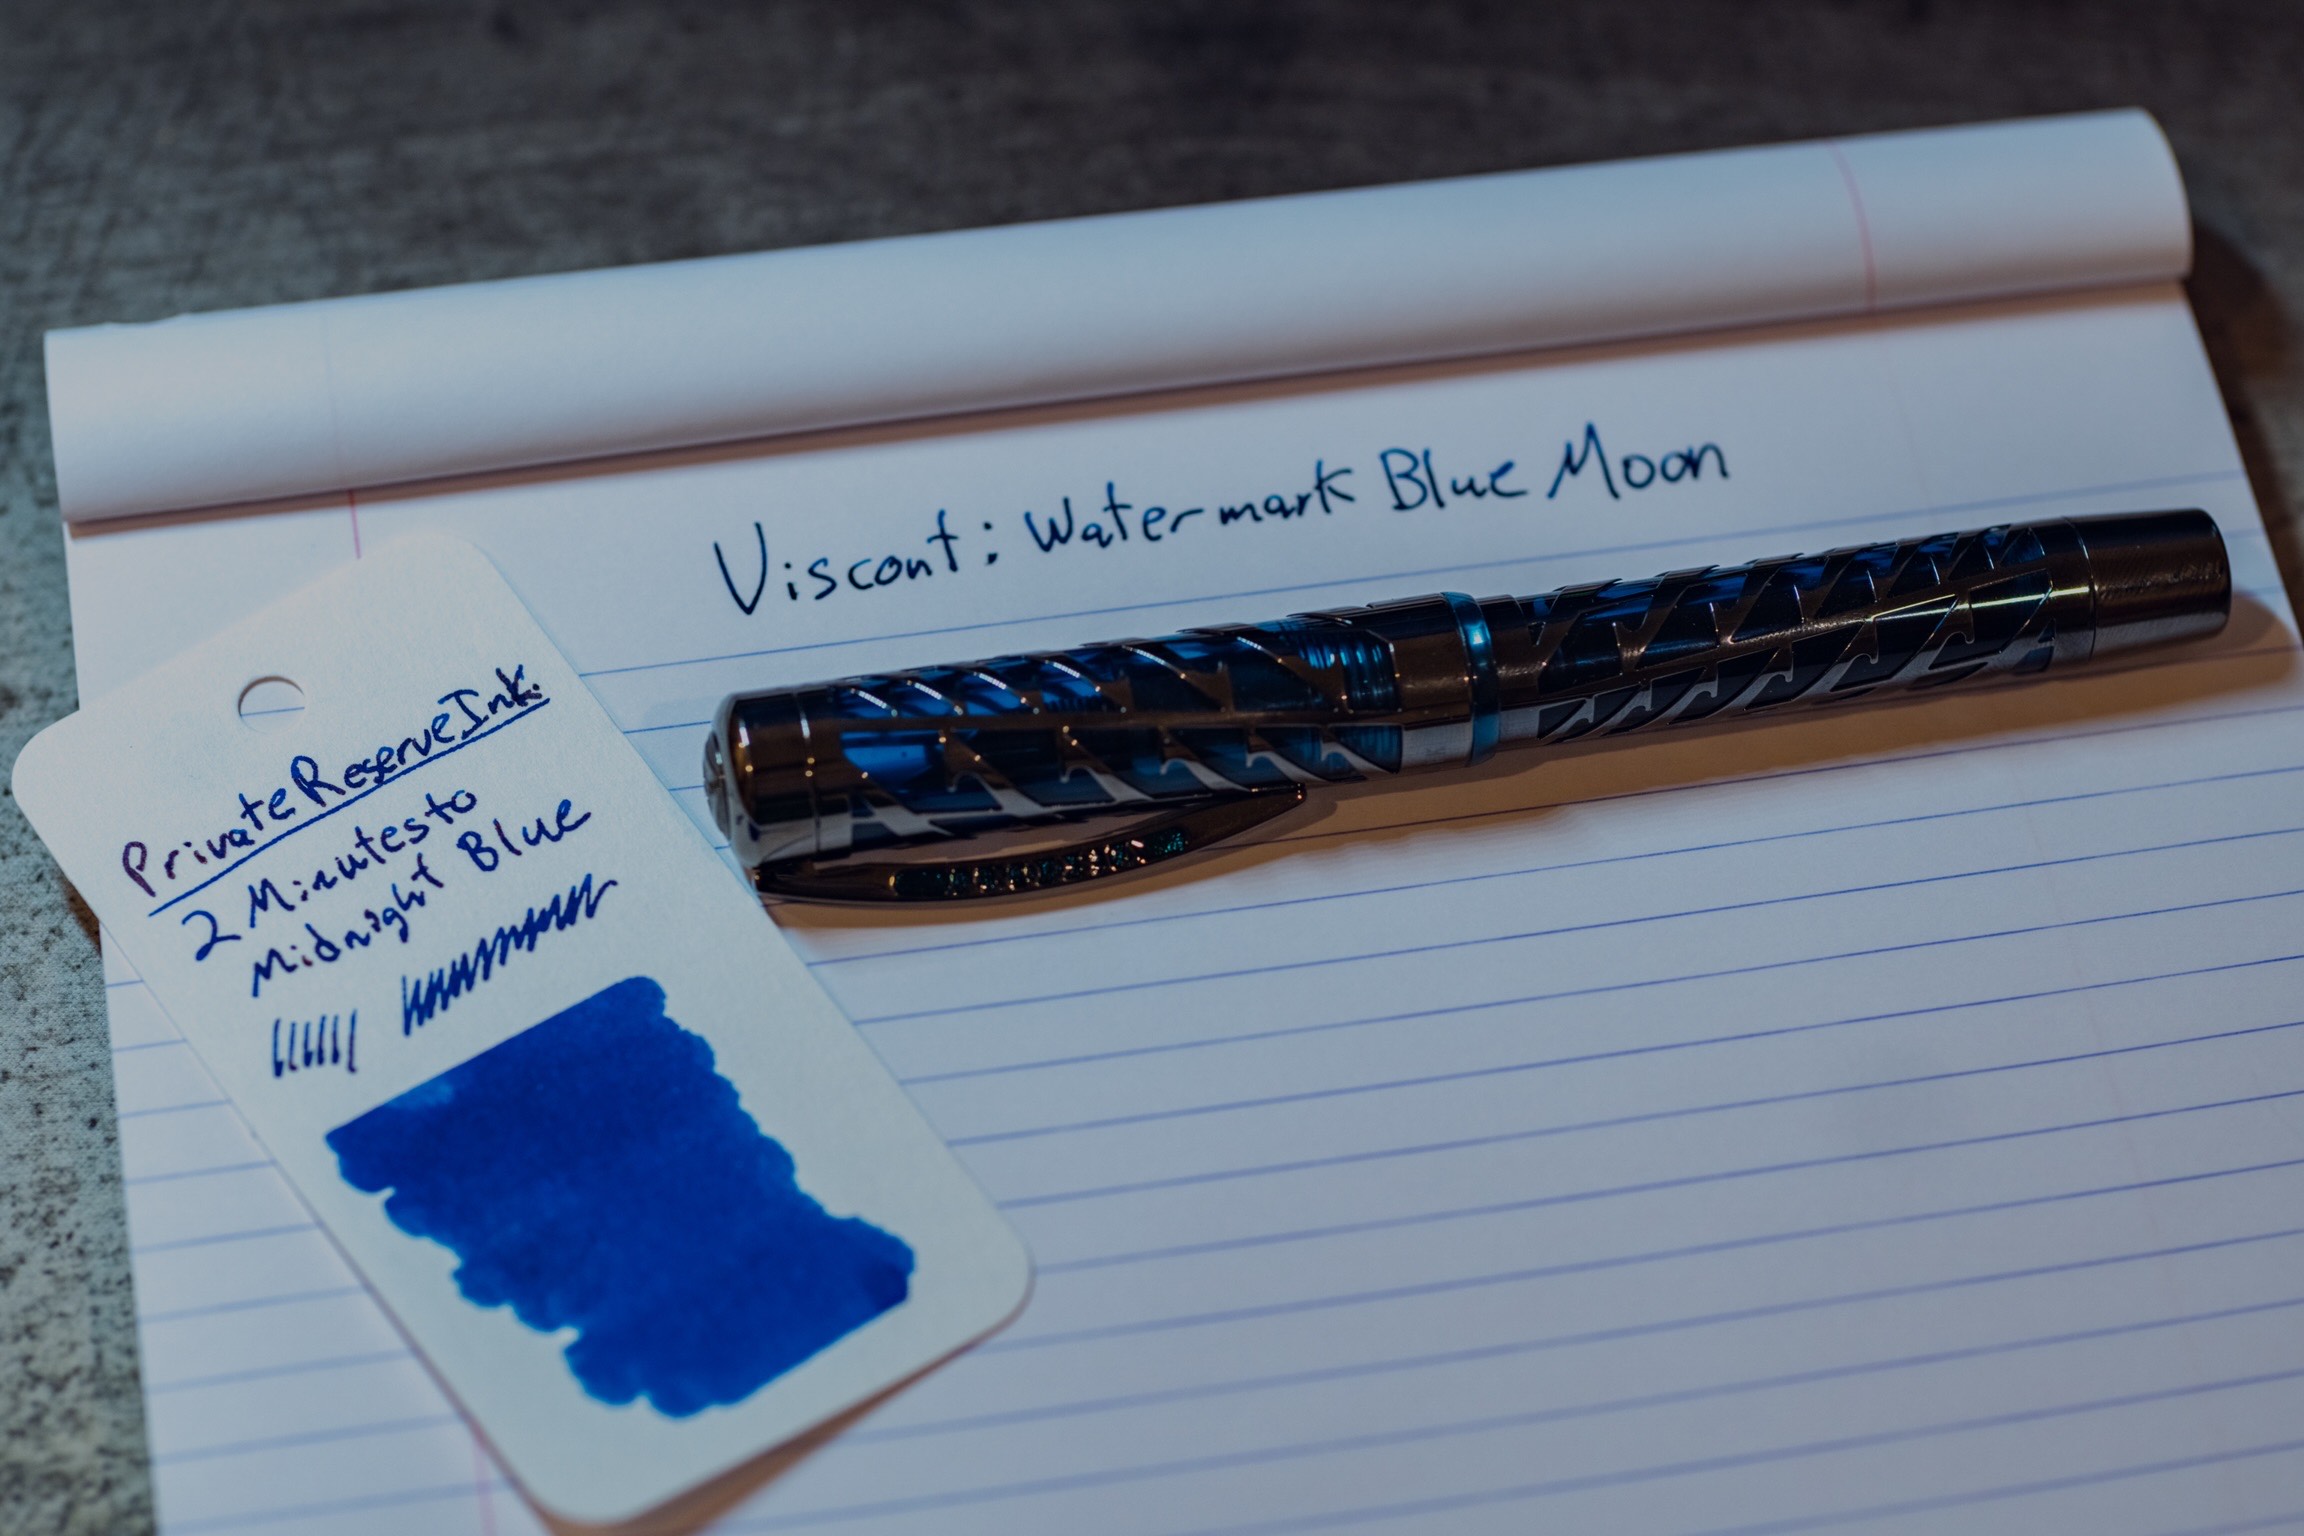 Viscont: Watermark Blue Moon
Private Reserve Ink:
2 Minutes to
Midnight Blue